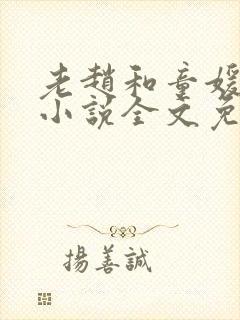 老趙和童媛
小說全文免
揚善誠